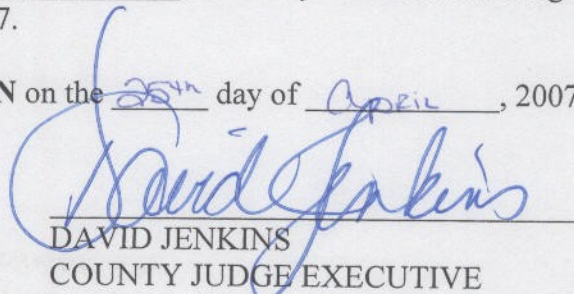 7.
N on the 25th day of April, 2007
David Jenkins
DAVID JENKINS
COUNTY JUDGE EXECUTIVE